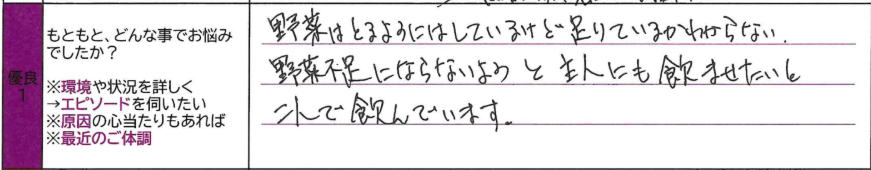 もともと、どんな事でお悩み
でしたか？
優良
1
※環境や状況を詳しく
→エピソードを伺いたい
※原因の心当たりもあれば
※最近のご体調
野菜はとるようにはしているけど足りているかわからない.
野菜不足にならないようと主人にも飲ませたいと
二人で飲んでいます。